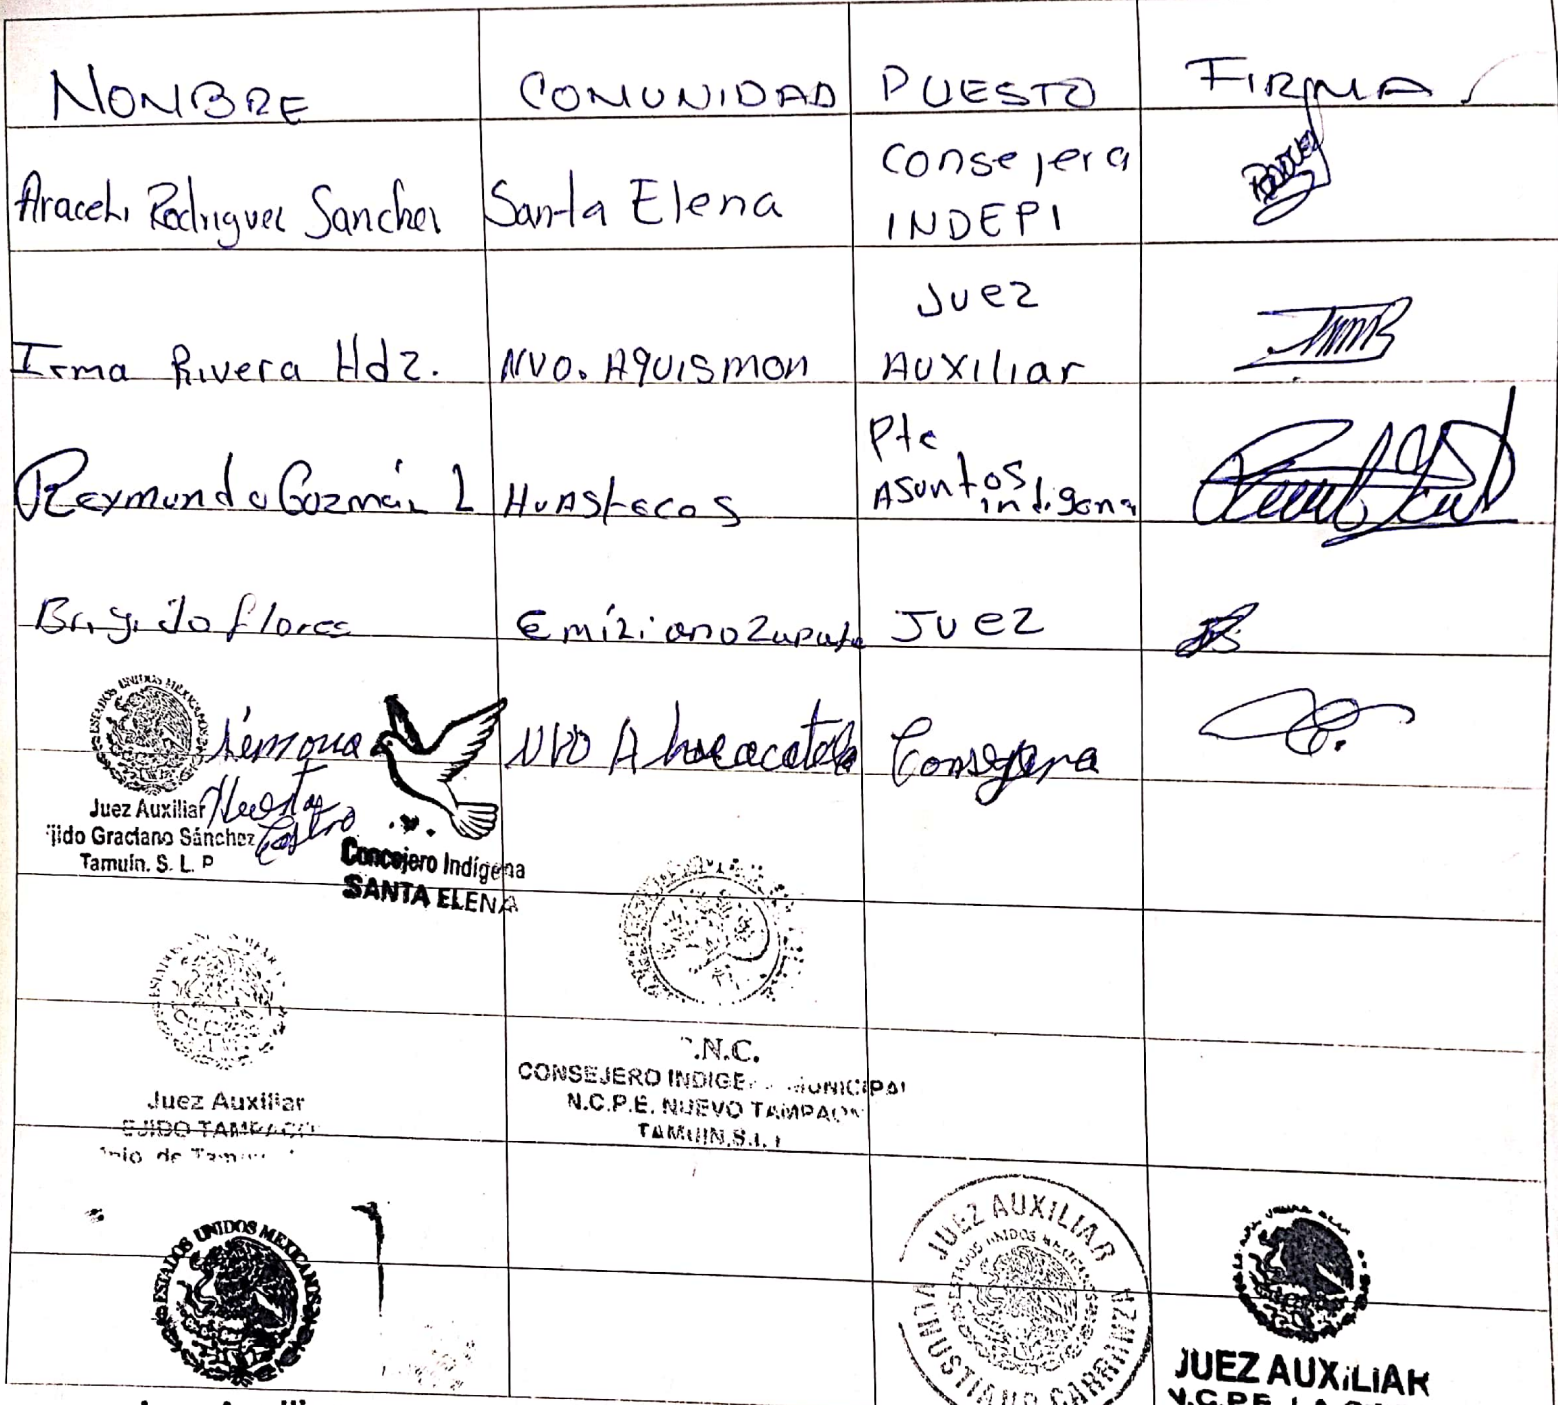 NOMBRE COMUNIDAD PUESTO FIRMA
Araceli Rodriguez Sanchez Santa Elena Consejera
INDEPI
Irma Rivera Hdz. NVO. AQUISMON Juez
AUXILIAR
Reymundo Guzmán L HUAStecos Pte
ASuntos
indigena
Brigido flores Emiliano Zapata JUEZ
NVO Ahuacatitla Consejera
Huerta
Castro
ESTADOS UNIDOS MEXICANOS
Juez Auxiliar
jido Graciano Sánchez
Tamuín. S. L. P
Concejero Indígena
SANTA ELENA
.N.C.
CONSEJERO INDIGE MUNICIPAL
N.C.P.E. NUEVO TAMPAON
TAMUIN, S.L.
Juez Auxiliar
EJIDO TAMPACO
de Tam
ESTADOS UNIDOS MEXICANOS
JUEZ AUXILIAR
ESTADOS UNIDOS MEXICANOS
VENUSTIANO CARRANZA
JUEZ AUXILIAR
N.C.P.E. LA